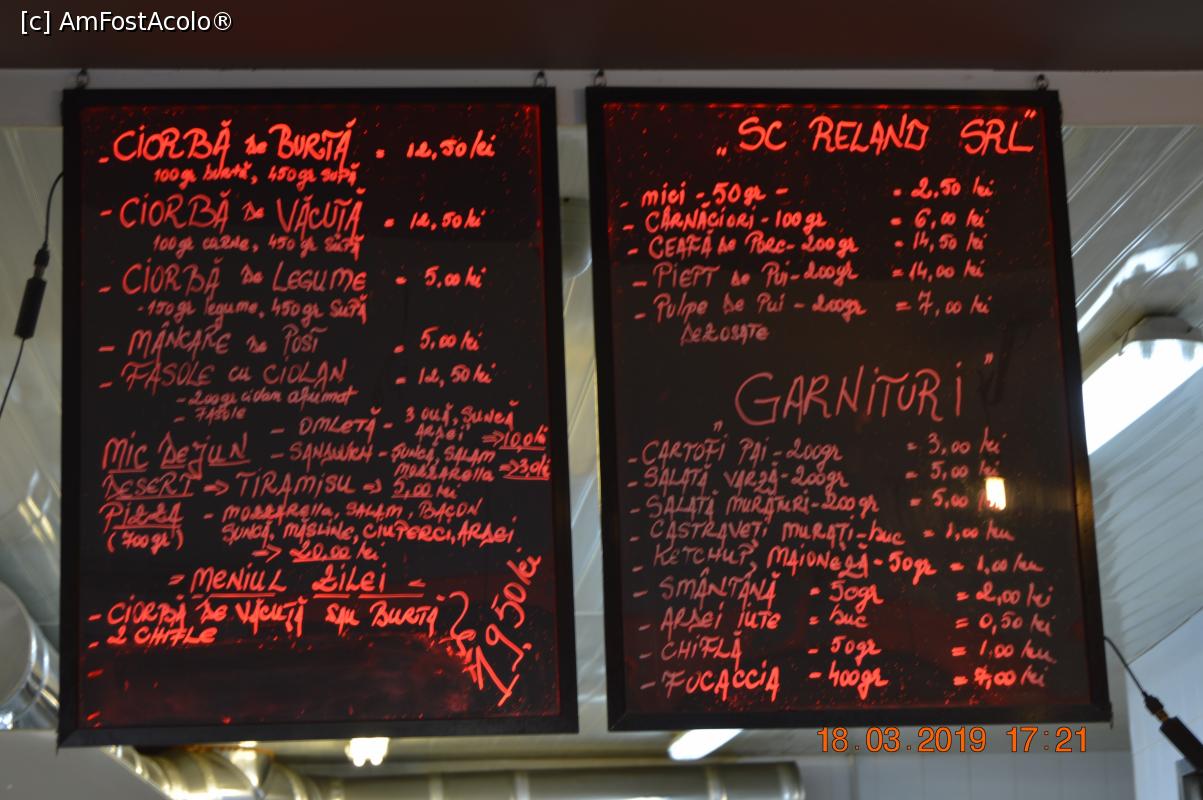 [c] AmFostAcolo®
- CIORBĂ de BURTĂ = 12,50 lei
100gr burtă, 450gr supă
- CIORBĂ de VĂCUȚĂ = 12,50 lei
100gr carne, 450gr supă
- CIORBĂ de LEGUME = 5,00 lei
- 150gr legume, 450gr supă
- MÂNCARE de POST = 5,00 lei
- FASOLE cu CIOLAN = 12,50 lei
- 200gr ciolan afumat
- FASOLE
MIC DEJUN - OMLETĂ - 3 OUĂ, ȘUNCĂ
ARDEI => 10,0 lei
- SANDWICH - ȘUNCĂ, SALAM
MOZZARELLA => 3,0 lei
DESERT => TIRAMISU => 5,00 lei
PIZZA - MOZZARELLA, SALAM, BACON
(700gr) ȘUNCĂ, MĂSLINE, CIUPERCI, ARDEI
=> 20,00 lei
= MENIUL ZILEI =
- CIORBĂ DE VĂCUȚĂ sau BURTĂ
- 2 CHIFLE
19,50 lei
„SC RELAND SRL"
- mici - 50gr - = 2,50 lei
- CÂRNĂCIORI - 100gr = 6,00 lei
- CEAFĂ de Porc - 200gr = 14,50 lei
- PIEPT de Pui - 200gr = 14,00 lei
- Pulpe de Pui - 200gr = 7,00 lei
DEZOSATE
„GARNITURI"
- CARTOFI PAI - 200gr = 3,00 lei
- SALATĂ VARZĂ - 200gr = 5,00 lei
- SALATĂ MURĂTURI - 200gr = 5,00 lei
- CASTRAVEȚI MURAȚI - buc = 1,00 lei
- KETCHUP, MAIONEZĂ - 50gr = 1,00 lei
- SMÂNTÂNĂ - 50gr = 2,00 lei
- ARDEI IUTE - buc = 0,50 lei
- CHIFLĂ - 50gr = 1,00 lei
- FOCACCIA - 400gr = 7,00 lei
18.03.2019 17:21